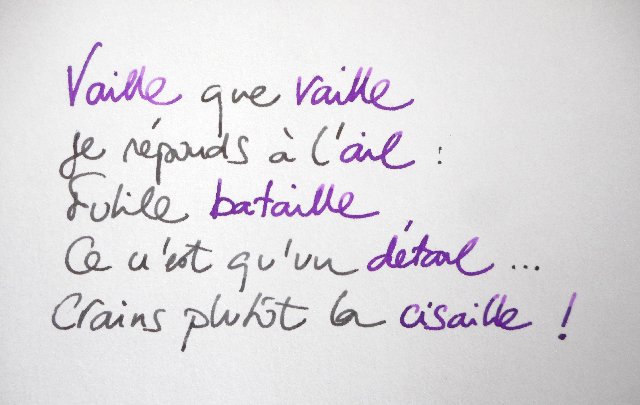 Vaille que vaille
Je réponds à l'ail :
Futile bataille
Ce n'est qu'un détail ...
Crains plutôt la cisaille !